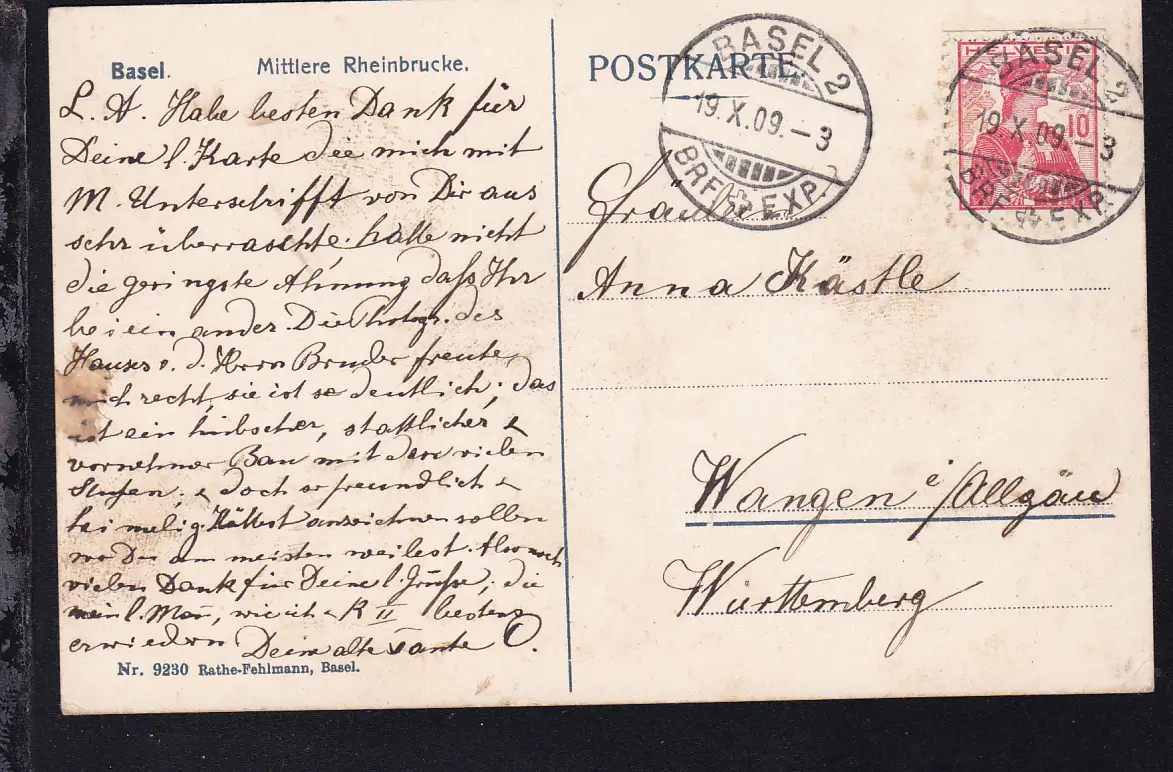 Basel. Mittlere Rheinbrucke.
L. A. Habe besten Dank für
Deine l. Karte die mich mit
M. Unterschrifft von Dir aus
sehr überraschte; hatte nicht
die geringste Ahnung daß Ihr
beieinander. Die Photogr. des
Hauses v. d. Herrn Bruder freute
mich recht, sie ist so deutlich; das
ist ein hübscher, stattlicher &
vornehmer Bau mit den vielen
Stufen; & doch so freundlich &
heimelig. Hättest anzeichnen sollen
wo Du am meisten weilest. Also noch
vielen Dank für Deine l. Grüsse; die
mein l. Mañ, wie ich & R II bestens
erwiedern Deine alte Tante O.
Nr. 9230 Rathe-Fehlmann, Basel.
POSTKARTE
BASEL 2
19.X.09.–3
BRF. EXP.
HELVETIA
10
BASEL 2
19.X.09.–3
BRF. EXP.
Fräulein
Anna Kästle
Wangen i/Allgäu
Württemberg